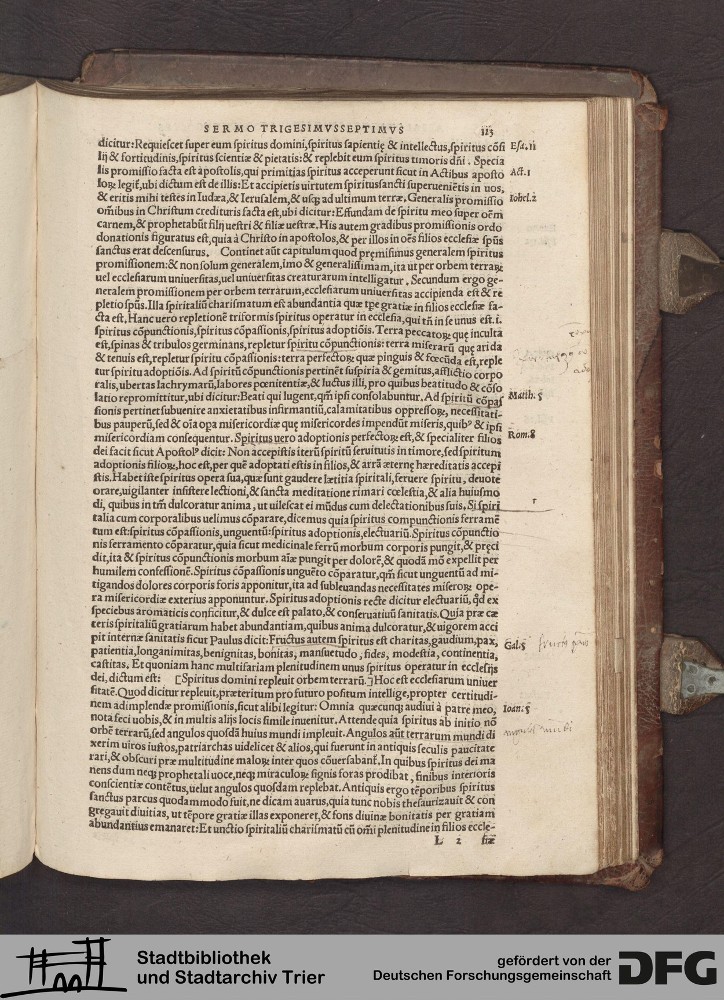 SERMO TRIGESIMVSSEPTIMVS 113
dicitur: Requiescet super eum spiritus domini, spiritus sapientię & intellectus, spiritus cõsi Esa. 11
lij & fortitudinis, spiritus scientiæ & pietatis: & replebit eum spiritus timoris dñi. Specia
lis promissio facta est apostolis, qui primitias spiritus acceperunt sicut in Actibus aposto Act. 1
loꝝ legit̃, ubi dictum est de illis: Et accipietis uirtutem spiritussancti superueniẽtis in uos,
& eritis mihi testes in Iudæa, & Ierusalem, & usq; ad ultimum terræ. Generalis promissio Iohel. 2
om̃ibus in Christum credituris facta est, ubi dicitur: Effundam de spiritu meo super oẽm
carnem, & prophetabũt filij uestri & filiæ uestræ. His autem gradibus promissionis ordo
donationis figuratus est, quia à Christo in apostolos, & per illos in oẽs filios ecclesiæ spũs
sanctus erat descensurus. Continet aũt capitulum quod pręmisimus generalem spiritus
promissionem: & non solum generalem, imo & generalissimam, ita ut per orbem terraꝝ
uel ecclesiarum uniuersitas, uel uniuersitas creaturarum intelligatur. Secundum ergo ge-
neralem promissionem per orbem terrarum, ecclesiarum uniuersitas accipienda est & re
pletio spũs. Illa spiritaliũ charismatum est abundantia quæ tpe gratiæ in filios ecclesiæ fa-
cta est. Hanc uero repletionẽ triformis spiritus operatur in ecclesia, qui tñ in se unus est. i.
spiritus cõpunctionis, spiritus cõpassionis, spiritus adoptiõis. Terra peccatoꝝ quę inculta
est, spinas & tribulos germinans, repletur spiritu cõpunctionis: terra miserarũ quę arida
& tenuis est, repletur spiritu cõpassionis: terra perfectoꝝ quæ pinguis & fœcũda est, reple
tur spiritu adoptiõis. Ad spiritũ cõpunctionis pertinẽt suspiria & gemitus, afflictio corpo
ralis, ubertas lachrymarũ, labores pœnitentiæ, & luctus illi, pro quibus beatitudo & cõso
latio repromittitur, ubi dicitur: Beati qui lugent, qm̃ ipsi consolabuntur. Ad spiritũ cõpas Matth. 5
sionis pertinet subuenire anxietatibus infirmantiũ, calamitatibus oppressoꝝ, necessitati-
bus pauperũ, sed & oĩa opa misericordiæ quę misericordes impendũt miseris, quibꝰ & ipsi
misericordiam consequentur. Spiritus uero adoptionis perfectoꝝ est, & specialiter filios Rom. 8
dei facit sicut Apostolꝰ dicit: Non accepistis iterũ spiritũ seruitutis in timore, sed spiritum
adoptionis filioꝝ, hoc est, per quẽ adoptati estis in filios, & arrã æternę hæreditatis accepi
stis. Habet iste spiritus opera sua, quæ sunt gaudere lætitia spiritali, feruere spiritu, deuote
orare, uigilanter insistere lectioni, & sancta meditatione rimari cœlestia, & alia huiusmo
di, quibus in tm̃ dulcoratur anima, ut uilescat ei mũdus cum delectationibus suis. Si spiri
talia cum corporalibus uelimus cõparare, dicemus quia spiritus compunctionis ferramẽ
tum est: spiritus cõpassionis, unguentũ: spiritus adoptionis, electuariũ. Spiritus cõpunctio
nis ferramento cõparatur, quia sicut medicinale ferrũ morbum corporis pungit, & pręci
dit, ita & spiritus cõpunctionis morbum aĩæ pungit per dolorẽ, & quodã mõ expellit per
humilem confessionẽ. Spiritus cõpassionis unguẽto cõparatur, qm̃ sicut unguentũ ad mi-
tigandos dolores corporis foris apponitur, ita ad subleuandas necessitates miseroꝝ ope-
ra misericordiæ exterius apponuntur. Spiritus adoptionis recte dicitur electuariũ, q̃d ex
speciebus aromaticis conficitur, & dulce est palato, & conseruatiuũ sanitatis. Quia præ cæ
teris spiritaliũ gratiarum habet abundantiam, quibus anima dulcoratur, & uigorem acci
pit internæ sanitatis sicut Paulus dicit: Fructus autem spiritus est charitas, gaudium, pax, Gal. 5
patientia, longanimitas, benignitas, bonitas, mansuetudo, fides, modestia, continentia,
castitas. Et quoniam hanc multifariam plenitudinem unus spiritus operatur in ecclesijs
dei, dictum est: [Spiritus domini repleuit orbem terrarũ.] Hoc est ecclesiarum uniuer
sitatẽ. Quod dicitur repleuit, præteritum pro futuro positum intellige, propter certitudi-
nem adimplendæ promissionis, sicut alibi legitur: Omnia quæcunq; audiui à patre meo, Ioan. 5
nota feci uobis, & in multis alijs locis simile inuenitur. Attende quia spiritus ab initio nõ
orbẽ terrarũ, sed angulos quosdã huius mundi impleuit. Angulos aũt terrarum mundi di
xerim uiros iustos, patriarchas uidelicet & alios, qui fuerunt in antiquis seculis paucitate
rari, & obscuri præ multitudine maloꝝ inter quos cõuersabant̃. In quibus spiritus dei ma
nens dum neq; prophetali uoce, neq; miraculoꝝ signis foras prodibat, finibus interioris
conscientiæ contẽtus, uelut angulos quosdam replebat. Antiquis ergo tẽporibus spiritus
sanctus parcus quodammodo fuit, ne dicam auarus, quia tunc nobis thesaurizauit & con
gregauit diuitias, ut tẽpore gratiæ illas exponeret, & fons diuinæ bonitatis per gratiam
abundantius emanaret: Et unctio spiritaliũ charismatũ cũ om̃i plenitudine in filios eccle-
L 2 siæ
Stadtbibliothek
und Stadtarchiv Trier
gefördert von der
Deutschen Forschungsgemeinschaft
DFG